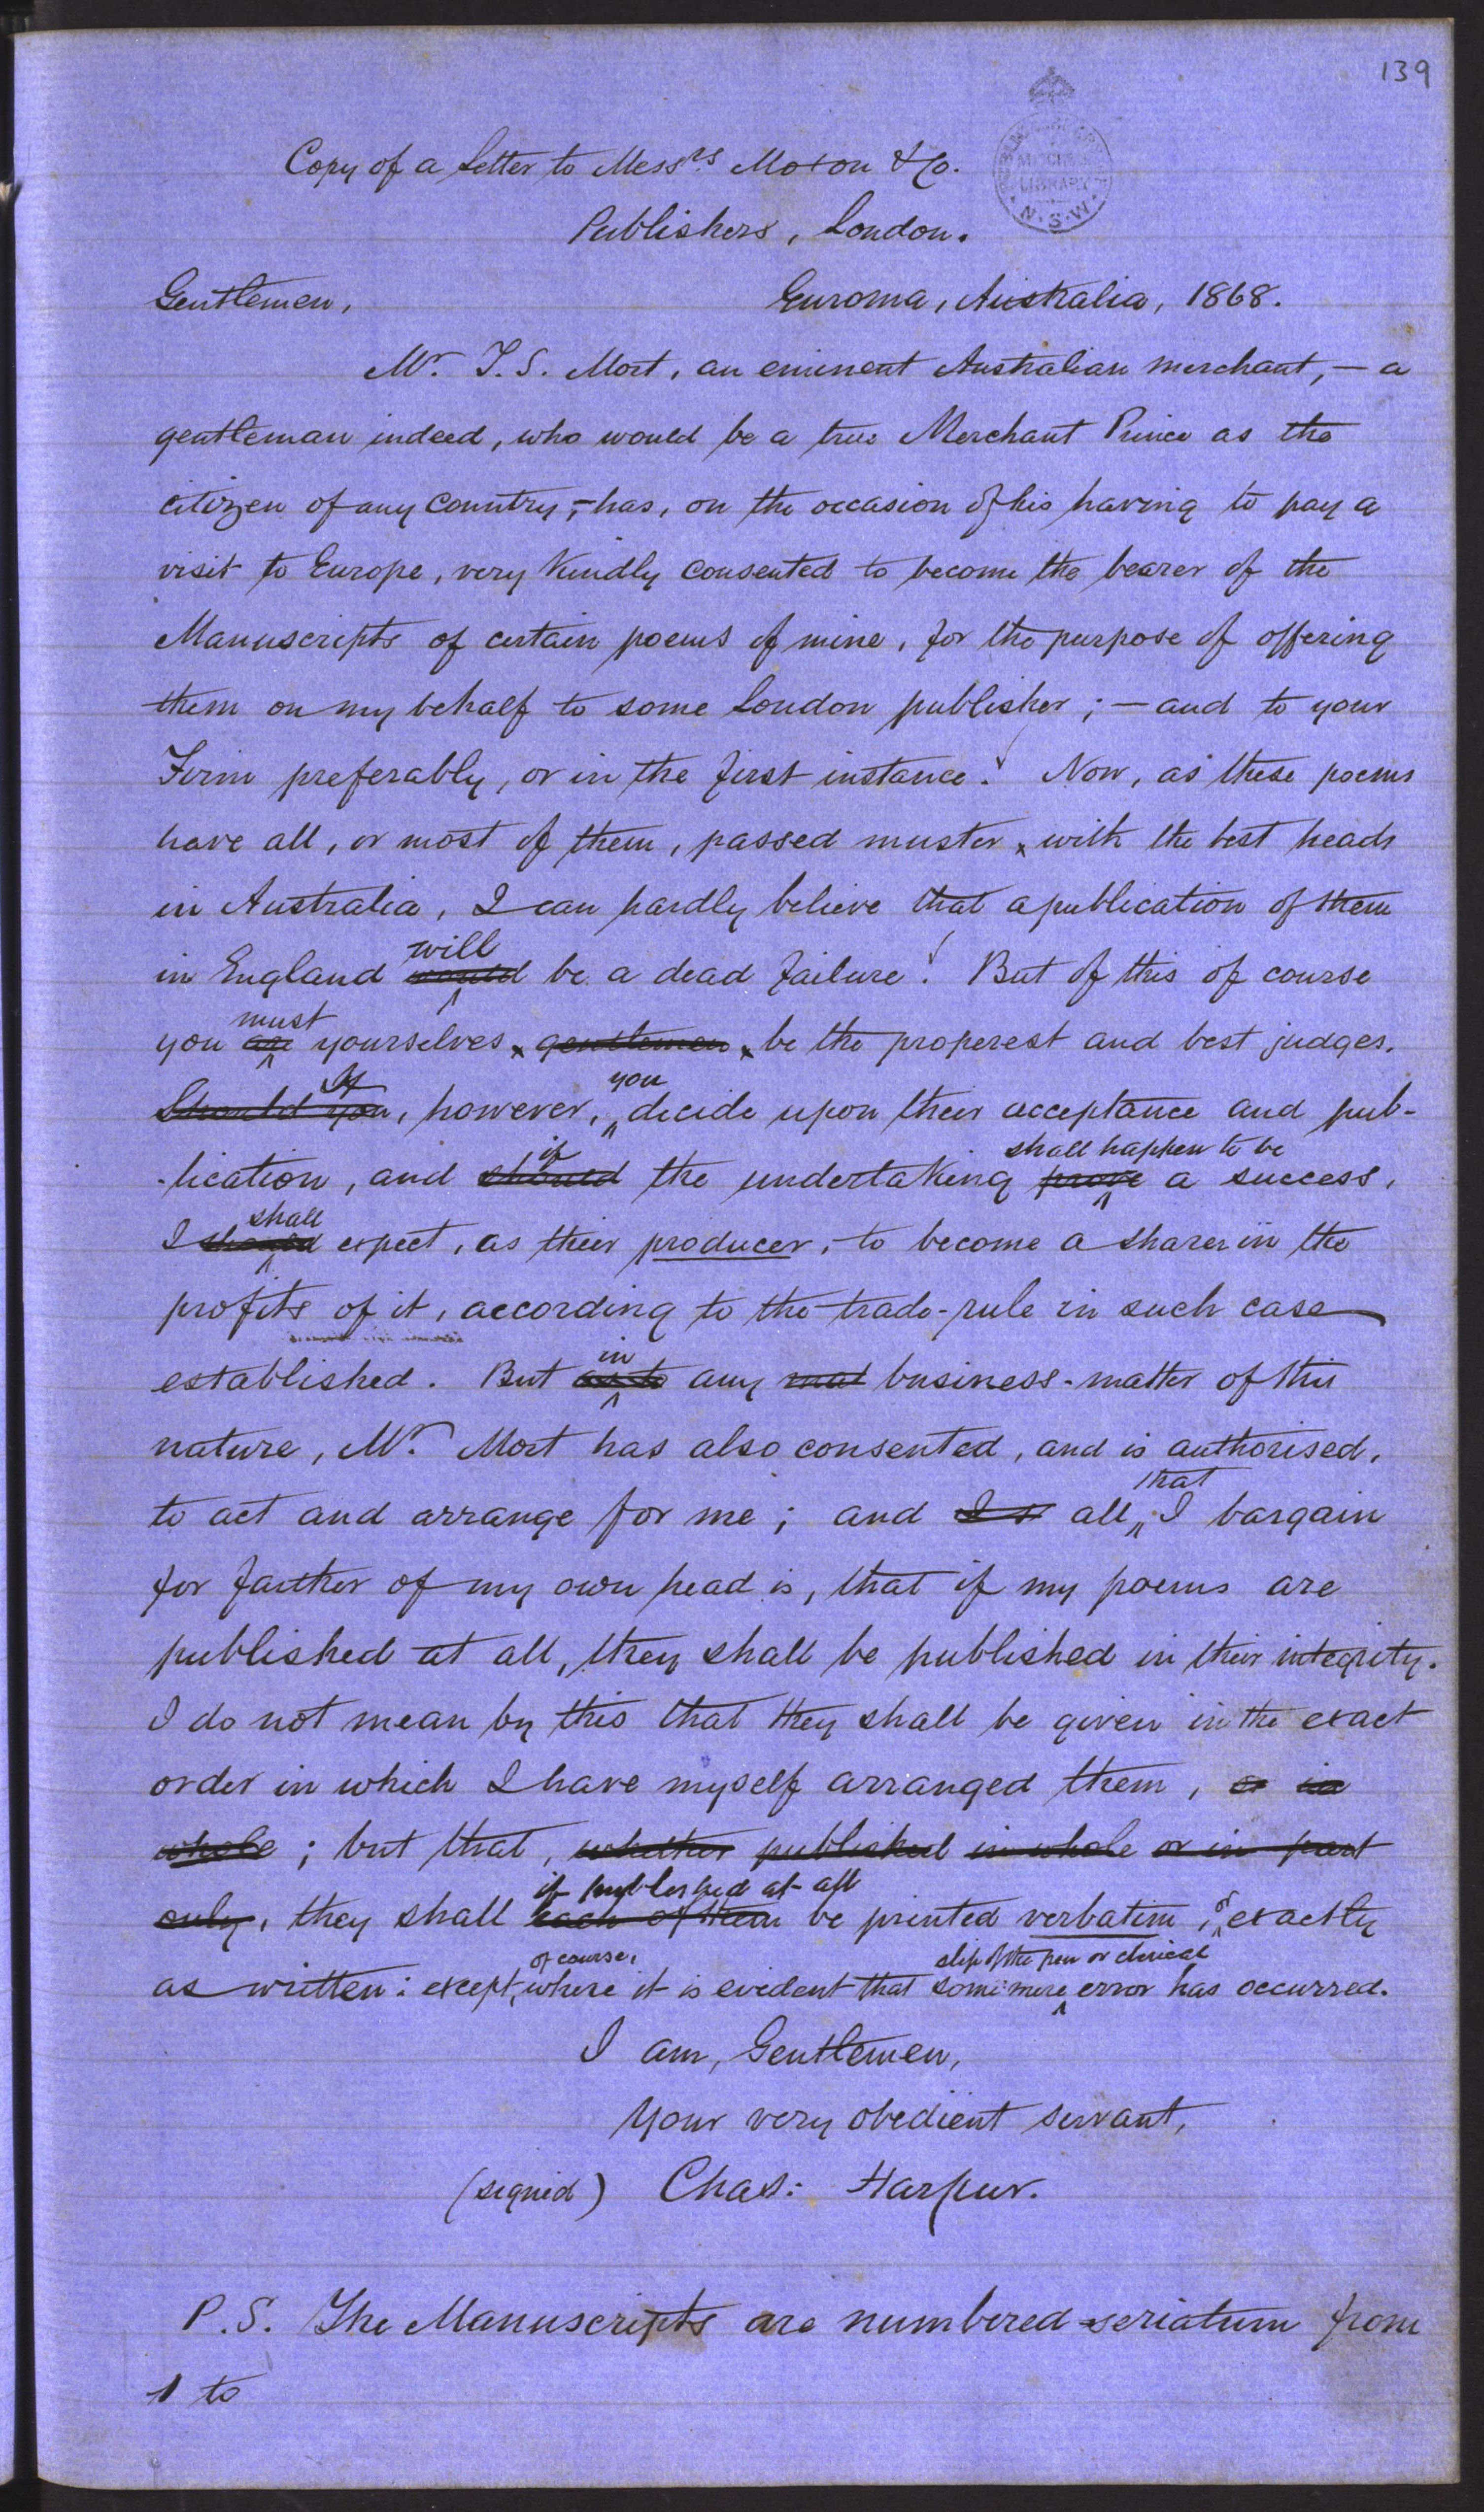 139
Copy of a Letter to Messrs Moxon & Co.
Publishers, London.
MITCHELL
LIBRARY
N.S.W.
Gentlemen, Euroma, Australia, 1868.
Mr. T. S. Mort, an eminent Australian merchant, — a
gentleman indeed, who would be a true Merchant Prince as the
citizen of any country, — has, on the occasion of his having to pay a
visit to Europe, very kindly consented to become the bearer of the
Manuscripts of certain poems of mine, for the purpose of offering
them on my behalf to some London publisher; — and to your
Firm preferably, or in the first instance. Now, as these poems
have all, or most of them, passed muster with the best heads
in Australia, I can hardly believe that a publication of them
will
in England would be a dead failure! But of this of course
must
you are yourselves gentlemen be the properest and best judges.
If you
Should you, however, decide upon their acceptance and pub-
if shall happen to be
-lication, and should the undertaking prove a success,
shall
I should expect, as their producer, to become a sharer in the
profits of it, according to the trade-rule in such case
in
established. But as to any business-matter of this
nature, Mr. Mort has also consented, and is authorised,
that
to act and arrange for me; and all I bargain
for farther of my own head is, that if my poems are
published at all, they shall be published in their integrity.
I do not mean by this that they shall be given in the exact
order in which I have myself arranged them, or in
whole; but that, whether published in whole or in part
if published at all
only, they shall each of them be printed verbatim, or exactly
of course, slip of the pen or clerical
as written: except, where it is evident that some mere error has occurred.
I am, Gentlemen,
Your very obedient servant,
(signed) Chas: Harpur.
P.S. The Manuscripts are numbered seriatum from
1 to